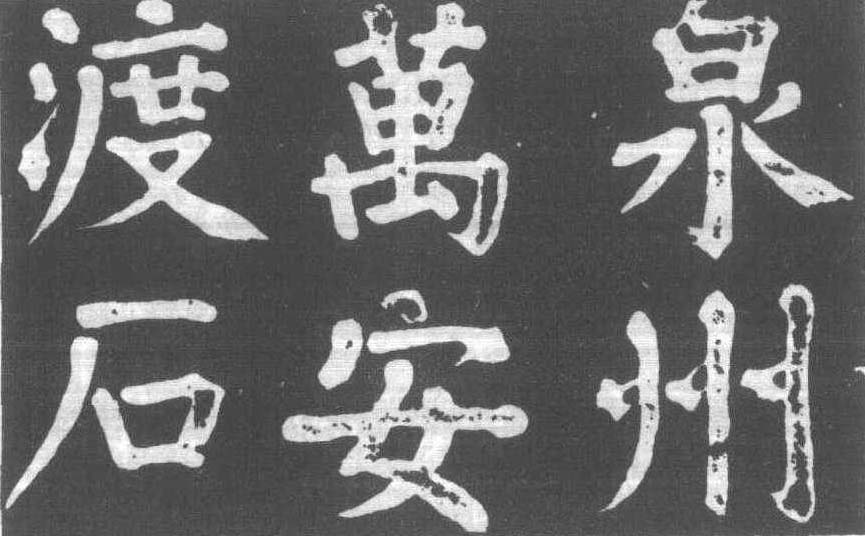 泉州
萬安
渡石